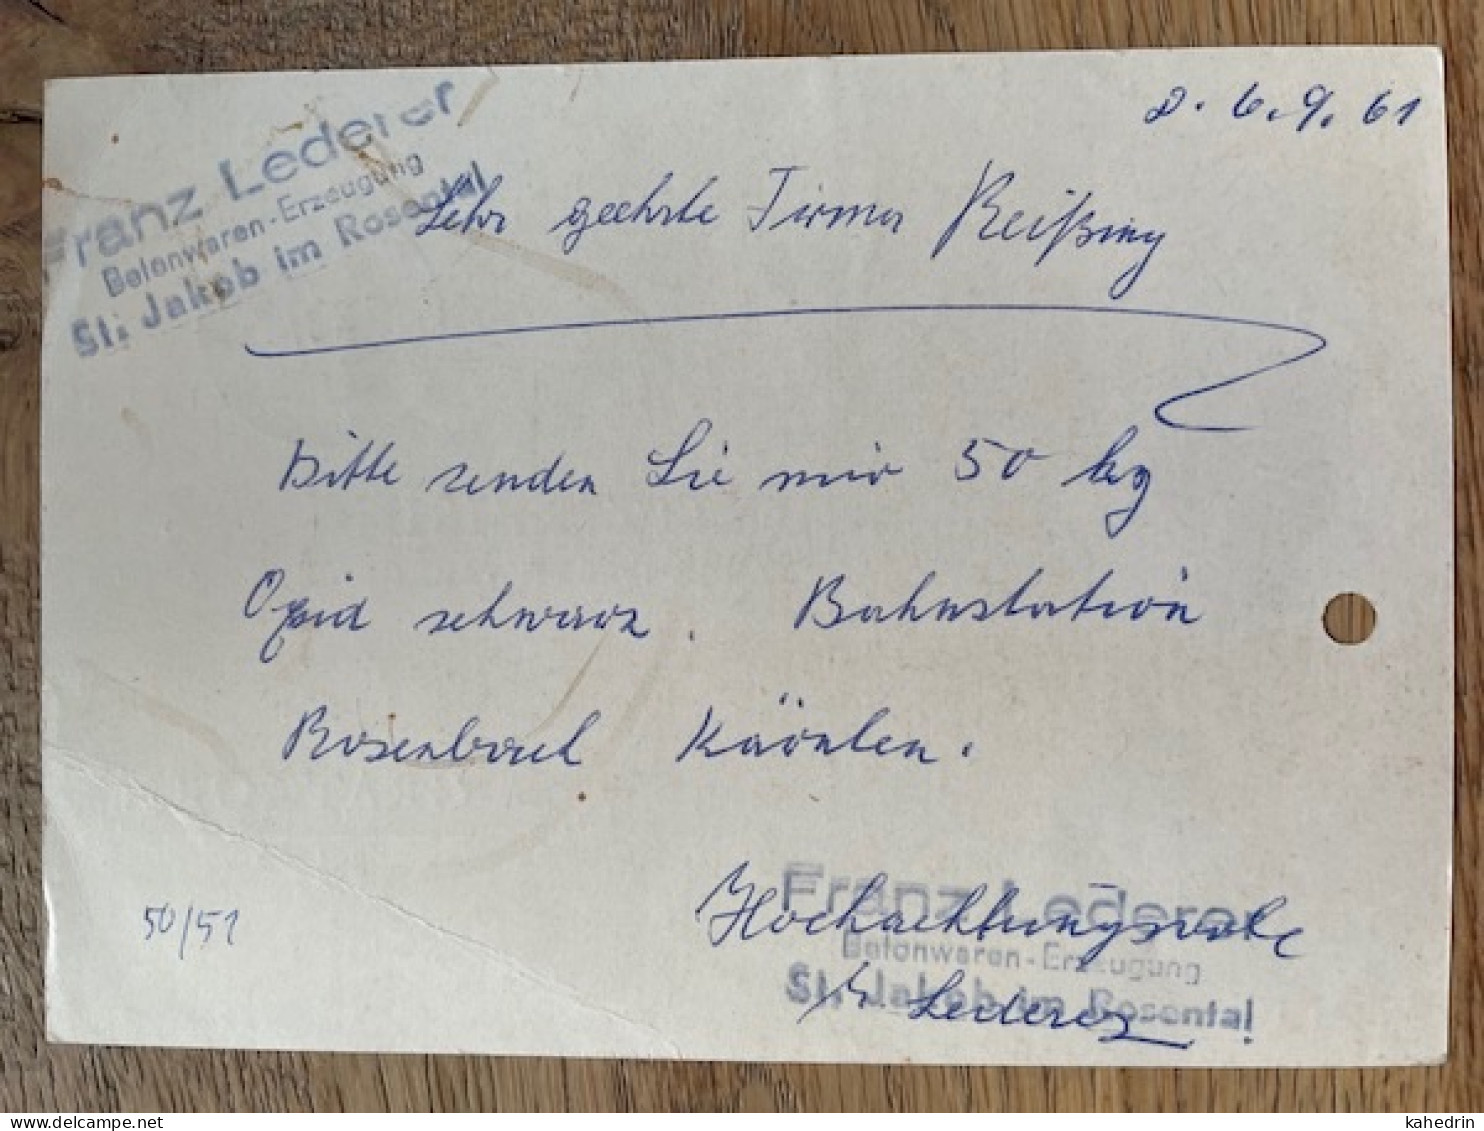 Franz Lederer
Betonwaren-Erzeugung
St. Jakob im Rosental
d. 6.9.61
Sehr geehrte Firma Reißing
Bitte senden Sie mir 50 kg
Oxid schwarz. Bahnstation
Rosenbach Kärnten.
50/51
Hochachtungsvoll
Franz Lederer
Betonwaren-Erzeugung
St. Jakob im Rosental
Lederer
kahedrin